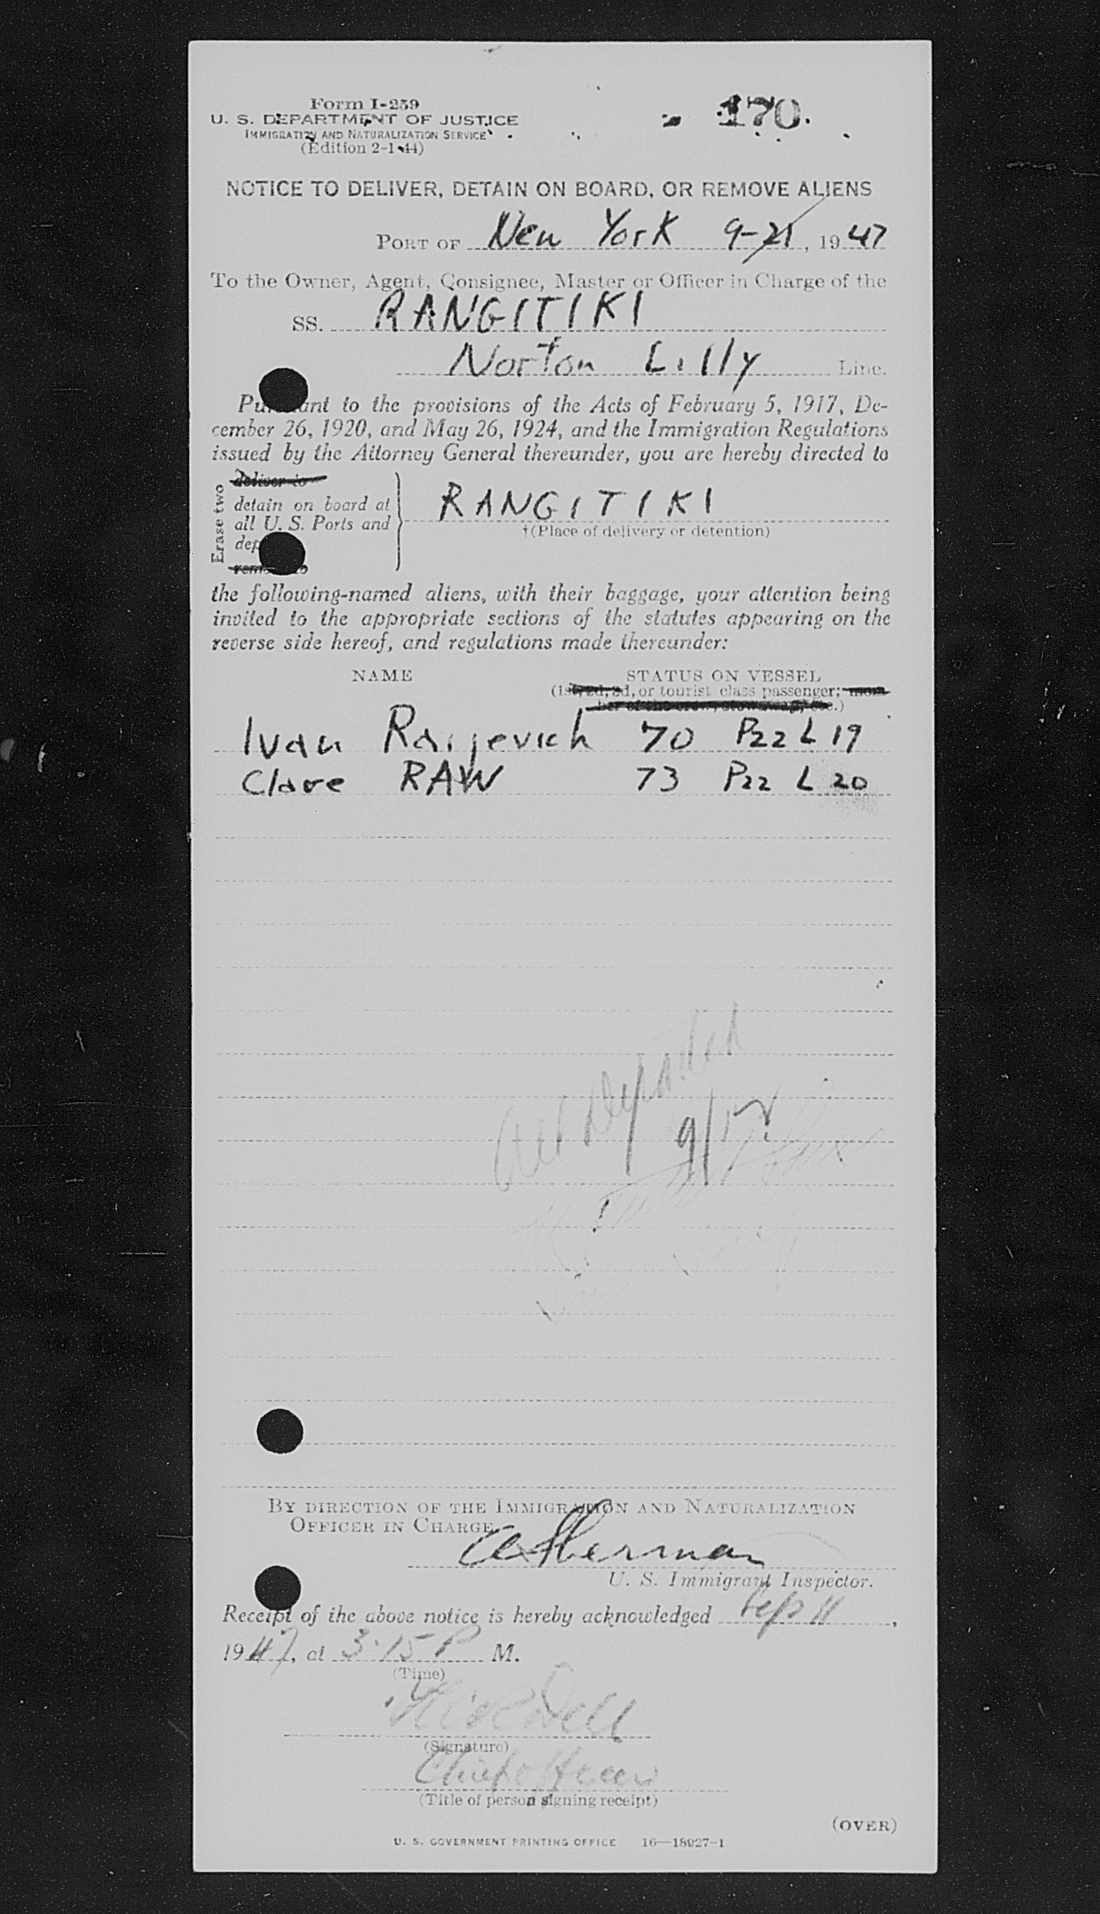 Form I-259
U. S. DEPARTMENT OF JUSTICE
IMMIGRATION AND NATURALIZATION SERVICE
(Edition 2-1-44)
170.
NOTICE TO DELIVER, DETAIN ON BOARD, OR REMOVE ALIENS
PORT OF New York 9-21, 1947
To the Owner, Agent, Consignee, Master or Officer in Charge of the
SS. RANGITIKI
Norton Lilly Line.
Pursuant to the provisions of the Acts of February 5, 1917, De-
cember 26, 1920, and May 26, 1924, and the Immigration Regulations
issued by the Attorney General thereunder, you are hereby directed to
Erase two
deliver to
detain on board at
all U. S. Ports and
dep
remove to
RANGITIKI
†(Place of delivery or detention)
the following-named aliens, with their baggage, your attention being
invited to the appropriate sections of the statutes appearing on the
reverse side hereof, and regulations made thereunder:
NAME STATUS ON VESSEL
(1st, 2d, 3d, or tourist class passenger; mem-
ber of the crew, stowaway, etc.)
Ivan 70 P22 L 19
Clare RAW 73 P22 L 20
9/12
BY DIRECTION OF THE IMMIGRATION AND NATURALIZATION
OFFICER IN CHARGE
Sherman
U. S. Immigrant Inspector.
Receipt of the above notice is hereby acknowledged Sep 11,
1947, at 3.15 P M.
(Time)
(Signature)
Chief Officer
(Title of person signing receipt)
(OVER)
U. S. GOVERNMENT PRINTING OFFICE 16—18927-1